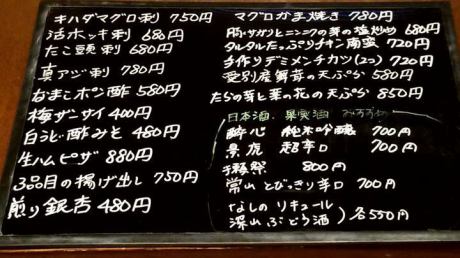 キハダマグロ刺 750円
活ホッキ刺 680円
たこ頭刺 680円
真アジ刺 780円
なまこポン酢 580円
梅ザーサイ 400円
白うど酢みそ 480円
生ハムピザ 880円
3品目の揚げ出し 750円
煎り銀杏 480円
マグロかま焼き 780円
豚サガリとニンニクの芽の塩炒め 680円
タルタルたっぷりチキン南蛮 720円
手作りデミメンチカツ(2コ) 720円
愛別産舞茸の天ぷら 580円
たらの芽と菜の花の天ぷら 850円
日本酒、果実酒
酔心 純米吟醸 700円
景虎 超辛口 700円
獺祭 800円
常山 とびっきり辛口 700円
なしのリキュール
深山ぶどう酒 各550円